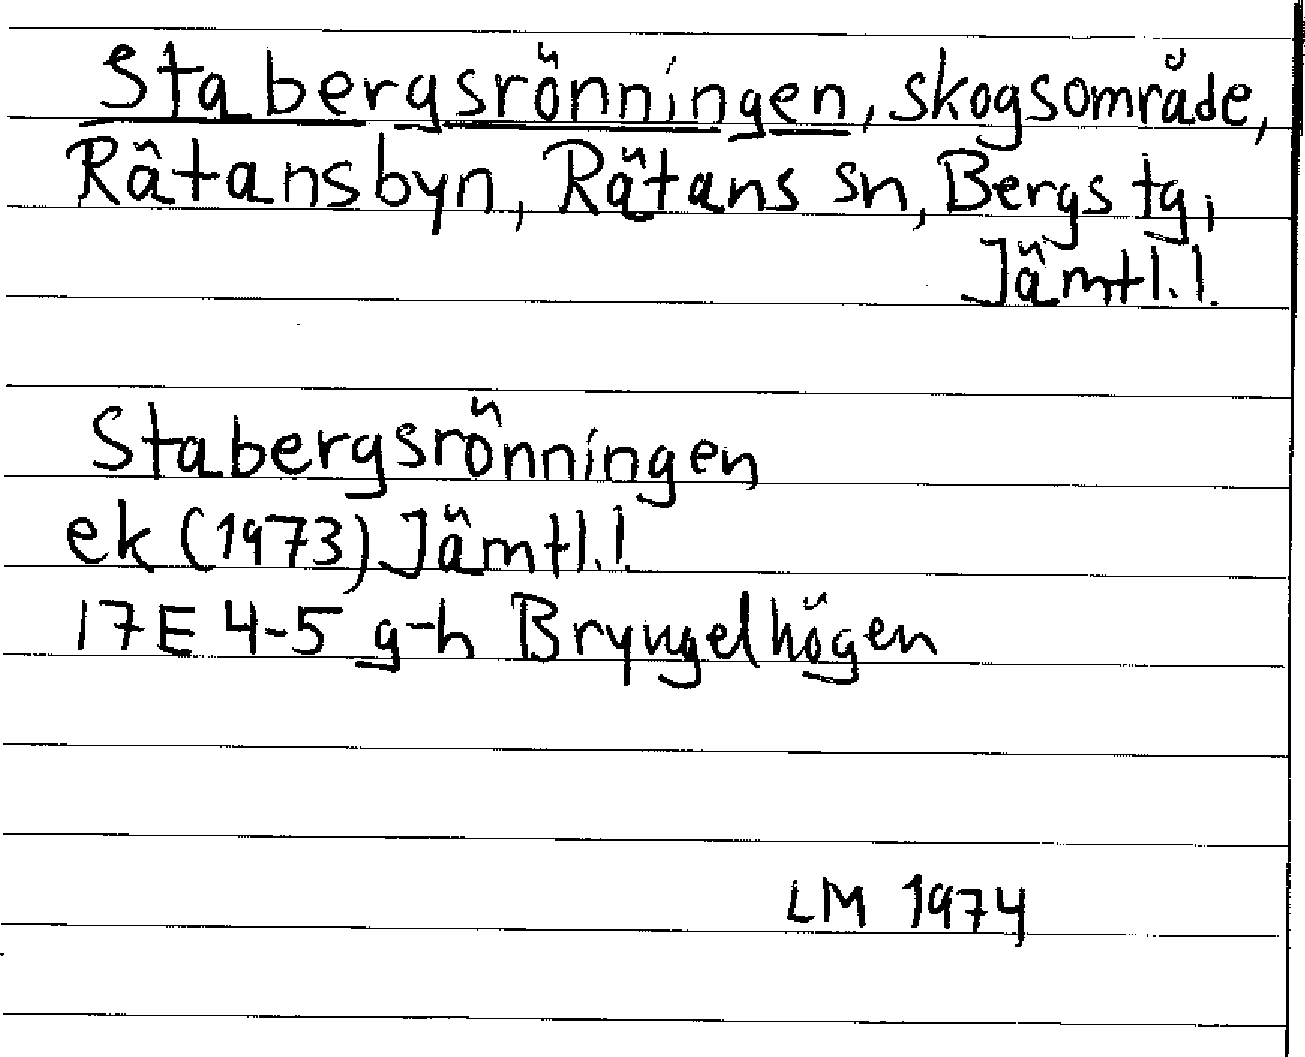 Stabergsrönningen, skogsområde,
Rätansbyn, Rätans sn, Bergs tg,
Jämtl.l.
Stabergsrönningen
ek (1973) Jämtl.l.
17E 4-5 g-h Bryngelhögen
LM 1974